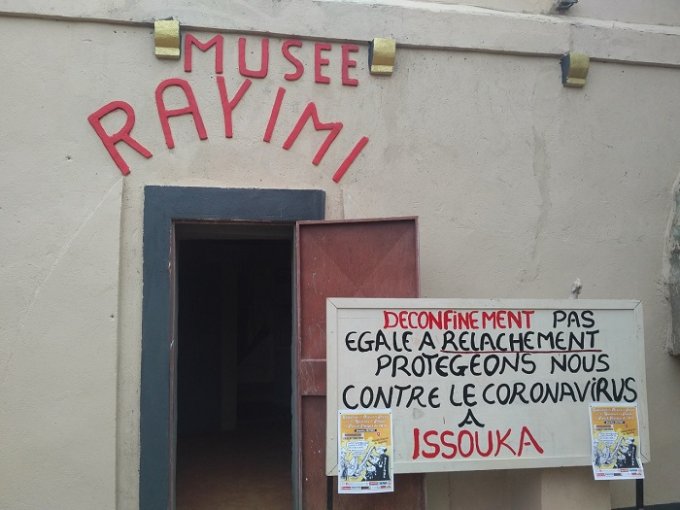 MUSEE
RAYIMI
DECONFINEMENT PAS
EGALE A RELACHEMENT
PROTEGEONS NOUS
CONTRE LE CORONAVIRUS
A
ISSOUKA